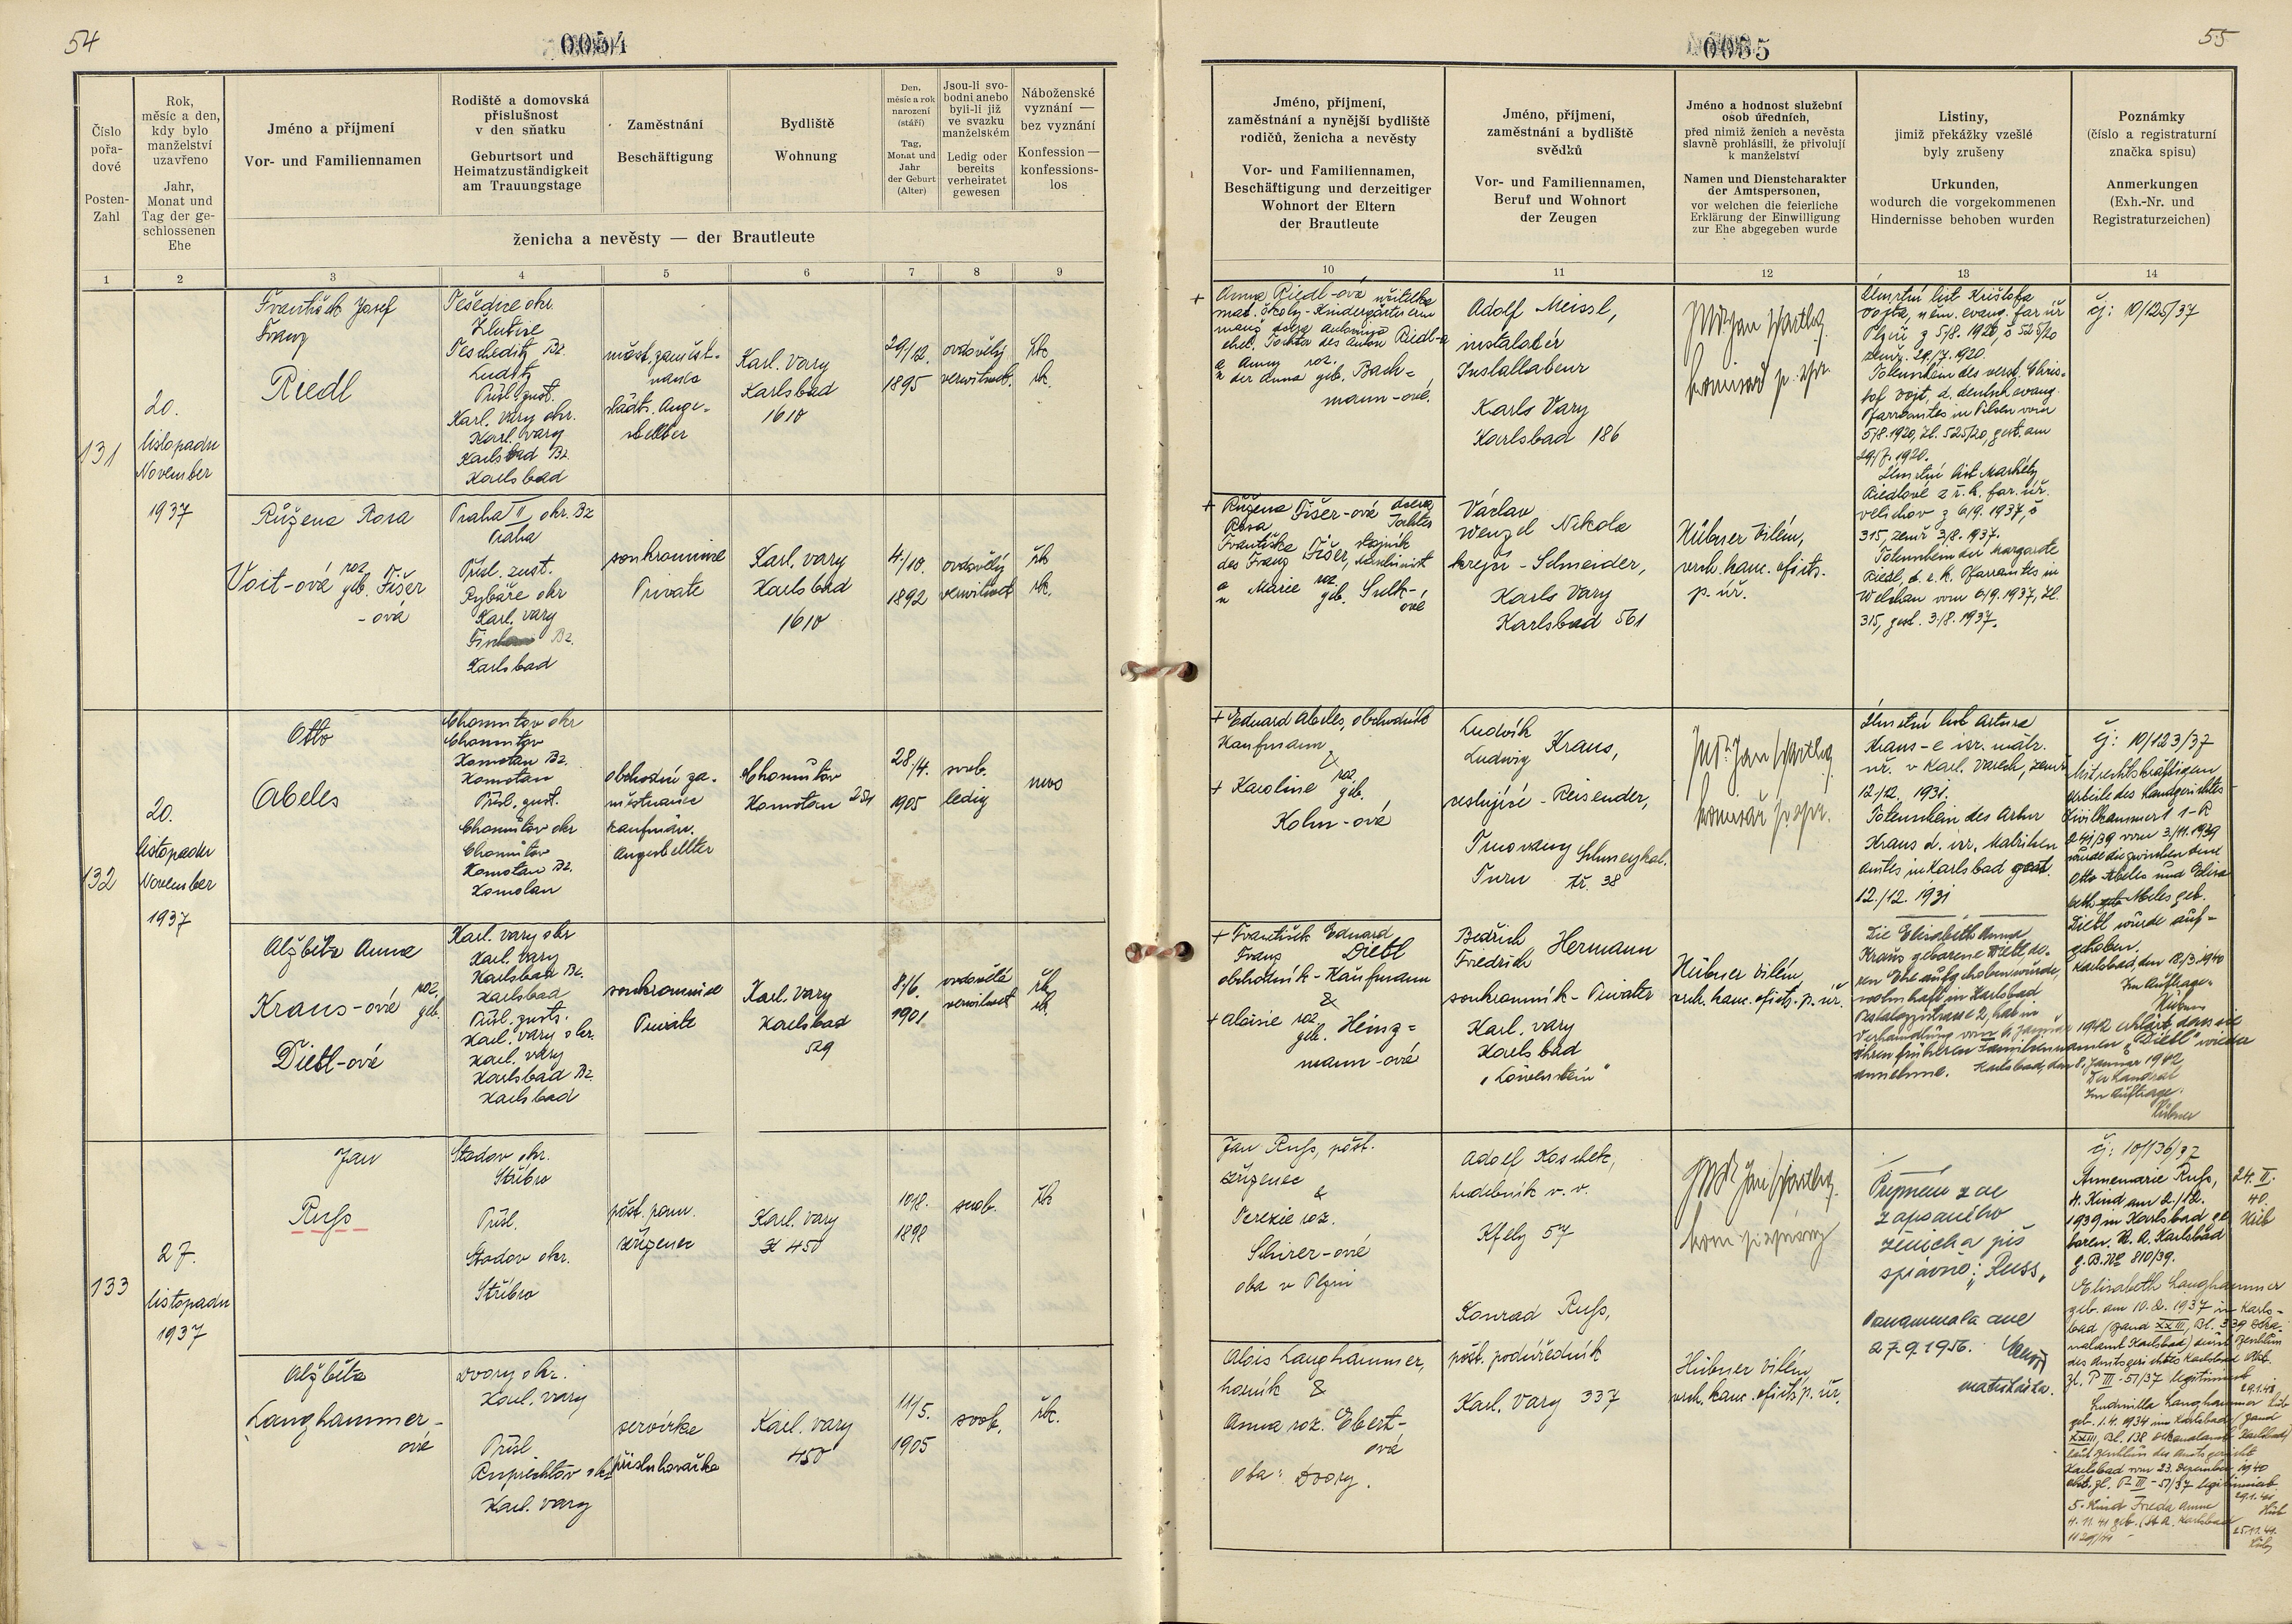 54
0054
Číslo
pořa-
dové
Posten-
Zahl
Rok,
měsíc a den,
kdy bylo
manželství
uzavřeno
Jahr,
Monat und
Tag der ge-
schlossenen
Ehe
Jméno a příjmení
Vor- und Familiennamen
Rodiště a domovská
příslušnost
v den sňatku
Geburtsort und
Heimatzuständigkeit
am Trauungstage
Zaměstnání
Beschäftigung
Bydliště
Wohnung
Den,
měsíc a rok
narození
(stáří)
Tag,
Monat und
Jahr
der Geburt
(Alter)
Jsou-li svo-
bodni anebo
byli-li již
ve svazku
manželském
Ledig oder
bereits
verheiratet
gewesen
Náboženské
vyznání —
bez vyznání
Konfession —
konfessions-
los
ženicha a nevěsty — der Brautleute
1 2 3 4 5 6 7 8 9
131
20.
listopadu
November
1937
František Josef
Franz
Riedl
Tešedne okr.
Žlutice
Tescheditz Bz.
Luditz
Přísl. zust.
Karl. Vary okr.
Karl. Vary
Karlsbad Bz.
Karlsbad
měst. zaměst-
nanec
städt. Ange-
stellter
Karl. Vary
Karlsbad
1610
29/12.
1895
ovdovělý
verwitwet.
řk.
rk.
Růžena Rosa
Voit-ová roz. geb. Fišer
-ová
Praha II okr. Bz
Praha
Přísl. zust.
Rybáře okr
Karl. Vary
Bz.
Karlsbad
soukromnice
Private
Karl. Vary
Karlsbad
1610
4/10.
1892
ovdovělý
verwitwet
řk
rk.
132
20.
listopadu
November
1937
Otto
Abeles
Chomutov okr
Chomutov
Komotau Bz.
Komotau
Přísl. zust.
Chomutov okr
Chomutov
Komotau Bz.
Komotau
obchodní za-
městnanec
kaufmän.
Angestellter
Chomutov
Komotau 251
28/4.
1905
svob.
ledig
Alžběta Anna
Kraus-ová roz. geb.
Dietl-ová
Karl. Vary okr
Karl. Vary
Karlsbad Bz.
Karlsbad
Přísl. zust.
Karl. Vary okr.
Karl. Vary
Karlsbad Bz.
Karlsbad
soukromnice
Private
Karl. Vary
Karlsbad
529
8/6.
1901
ovdovělá
verwitwet
řk.
rk.
133
27.
listopadu
1937
Jan
Russ
Stodov okr.
Stříbro
Přísl.
Stodov okr.
Stříbro
pošt. pom.
zřízenec
Karl. Vary
450
10/8.
1898
svob.
řk
Alžběta
Langhammer-
ová
Dvory okr.
Karl. Vary
Přísl
Ruprechtov okr
Karl. Vary
servírka
Karl. Vary
450
11/5.
1905
svob.
řk.
55
0055
Jméno, příjmení,
zaměstnání a nynější bydliště
rodičů, ženicha a nevěsty
Vor- und Familiennamen,
Beschäftigung und derzeitiger
Wohnort der Eltern
der Brautleute
Jméno, příjmení,
zaměstnání a bydliště
svědků
Vor- und Familiennamen,
Beruf und Wohnort
der Zeugen
Jméno a hodnost služební
osob úředních,
před nimiž ženich a nevěsta
slavně prohlásili, že přivolují
k manželství
Namen und Dienstcharakter
der Amtspersonen,
vor welchen die feierliche
Erklärung der Einwilligung
zur Ehe abgegeben wurde
Listiny,
jimiž překážky vzešlé
byly zrušeny
Urkunden,
wodurch die vorgekommenen
Hindernisse behoben wurden
Poznámky
(číslo a registraturní
značka spisu)
Anmerkungen
(Exh.-Nr. und
Registraturzeichen)
10 11 12 13 14
+ Anna Riedl-ová učitelka
mat. školy - Kindergärtnerin
Tochter des Anton Riedl-a
a Anny roz.
u der Anna geb. Bach-
mann-ové.
Adolf Meissl,
instalatér
Installateur
Karls Vary
Karlsbad 186
JUDr Jan
Úmrtní list Krištofa
Vojta, něm. evang. far. úř
Plzeň z 5/8. 1920, č 525/20
zemř. 29/7. 1920.
Totenschein des verst. Chris-
tof Vojt, d. deutsch evang.
Pfarramtes in Pilsen vom
5/8. 1920, Zl. 525/20, gest. am
29/7. 1920.
Úmrtní list Markéty
Riedlové z ř. k. far. úř.
Velichov z 6/9. 1937, č
315, zemř 3/8. 1937.
Totenschein der Margarete
Riedl, d. r. k. Pfarramtes in
Welchau vom 6/9. 1937, Zl.
315, gest. 3/8. 1937.
čj: 10/125/37
+ Růžena Fišer-ová dcera
Rosa Tochter
Františka Fišer, strojník
des Franz Maschinist
a Marie roz.
u geb. Sulk-
ové
Václav
Wenzel Nikola
krejčí - Schneider,
Karls Vary
Karlsbad 561
Hübner Vilém,
vrch. kanc. oficiál
p. úř.
+ Eduard Abeles, obchodník
Kaufmann
&
+ Karoline roz. geb.
Kohn-ová
Ludvík
Ludwig Kraus,
cestující - Reisender,
Trnovany Schmeykal.
Turn tř. 38
JUDr. Jan
Úmrtní list Artura
Kraus-e isr. matr.
úř. v Karl. Varech, zemř
12./12. 1931.
Totenschein des Artur
Kraus d. isr. Matriken
amtes in Karlsbad gest.
12./12. 1931
čj: 10/123/37
Mit rechtskräftigem
Urteile des Landgerichtes
Zivilkammer 1 1-R
241/39 vom 3./11. 1939
wurde die zwischen dem
Otto Abeles und Elisa
beth Abeles geb.
Dietl wurde auf-
gehoben.
Karlsbad, den 12./3. 1940
Im Auftrage.
Hübner
+ František Eduard
Franz Dietl
obchodník - Kaufmann
&
+ Aloisie roz. geb. Heinz-
mann-ová
Bedřich
Friedrich Hermann
soukromník - Privater
Karl. Vary
Karlsbad
„Löwenstein"
Hübner Vilém
vrch. kanc. oficiál p. úř.
Die Elisabeth Anna
Kraus geborene Dietl, de-
ren Ehe aufgehoben wurde,
wohnhaft in Karlsbad
Pestalozzistrasse 2, hat in
Verhandlung vom 6. Januar 1942 erklärt, dass sie
ihren früheren Familiennamen „Dietl" wieder
annehme. Karlsbad, den 8. Januar 1942
Der Landrat
Im Auftrage.
Hübner
Jan Russ, pošt.
zřízenec
&
Terezie roz.
Schirer-ová
oba v Plzni
Adolf Koschek,
hudebník v. v.
Kfely 57
Konrad Russ,
pošt. podúředník
Karl. Vary 337
JUDr Jan
Příjmení zde
zapsaného
ženicha píš
správně: „Russ„
Poznamenala dne
27. 9. 1956.
matrikářka.
čj: 10/136/37
Annemarie Russ,
4. Kind am 2./12.
1939 in Karlsbad ge
boren. St. A. Karlsbad
g. B. № 810/39.
24. II.
40.
Hüb
Elisabeth Langhammer
geb. am 10. 2. 1937 in Karls-
bad (Band XXIII, Bl. 339 Deka
nalamt Karlsbad) durch Beschluss
des Amtsgerichtes Karlsbad Abt.
Zl. P III - 51/37 legitimiert
29.1.41
Ludmilla Langhammer Hüb
geb. 1. 4. 1934 in Karlsbad (Band
XXIII, Bl. 138 Dekanalamt Karlsbad)
laut Beschluss des Amtsgerichts
Karlsbad vom 23. Dezember 1940
Abt. Zl. P III - 51/37 legitimiert
29.1.41
Hüb
5. Kind Frieda Anna
4. 11. 41 geb. (St A. Karlsbad
25.11.41.
Alois Langhammer,
horník &
Anna roz. Ebert-
ová
oba: Dvory.
Hübner Vilém
vrch. kanc. oficiál p. úř.